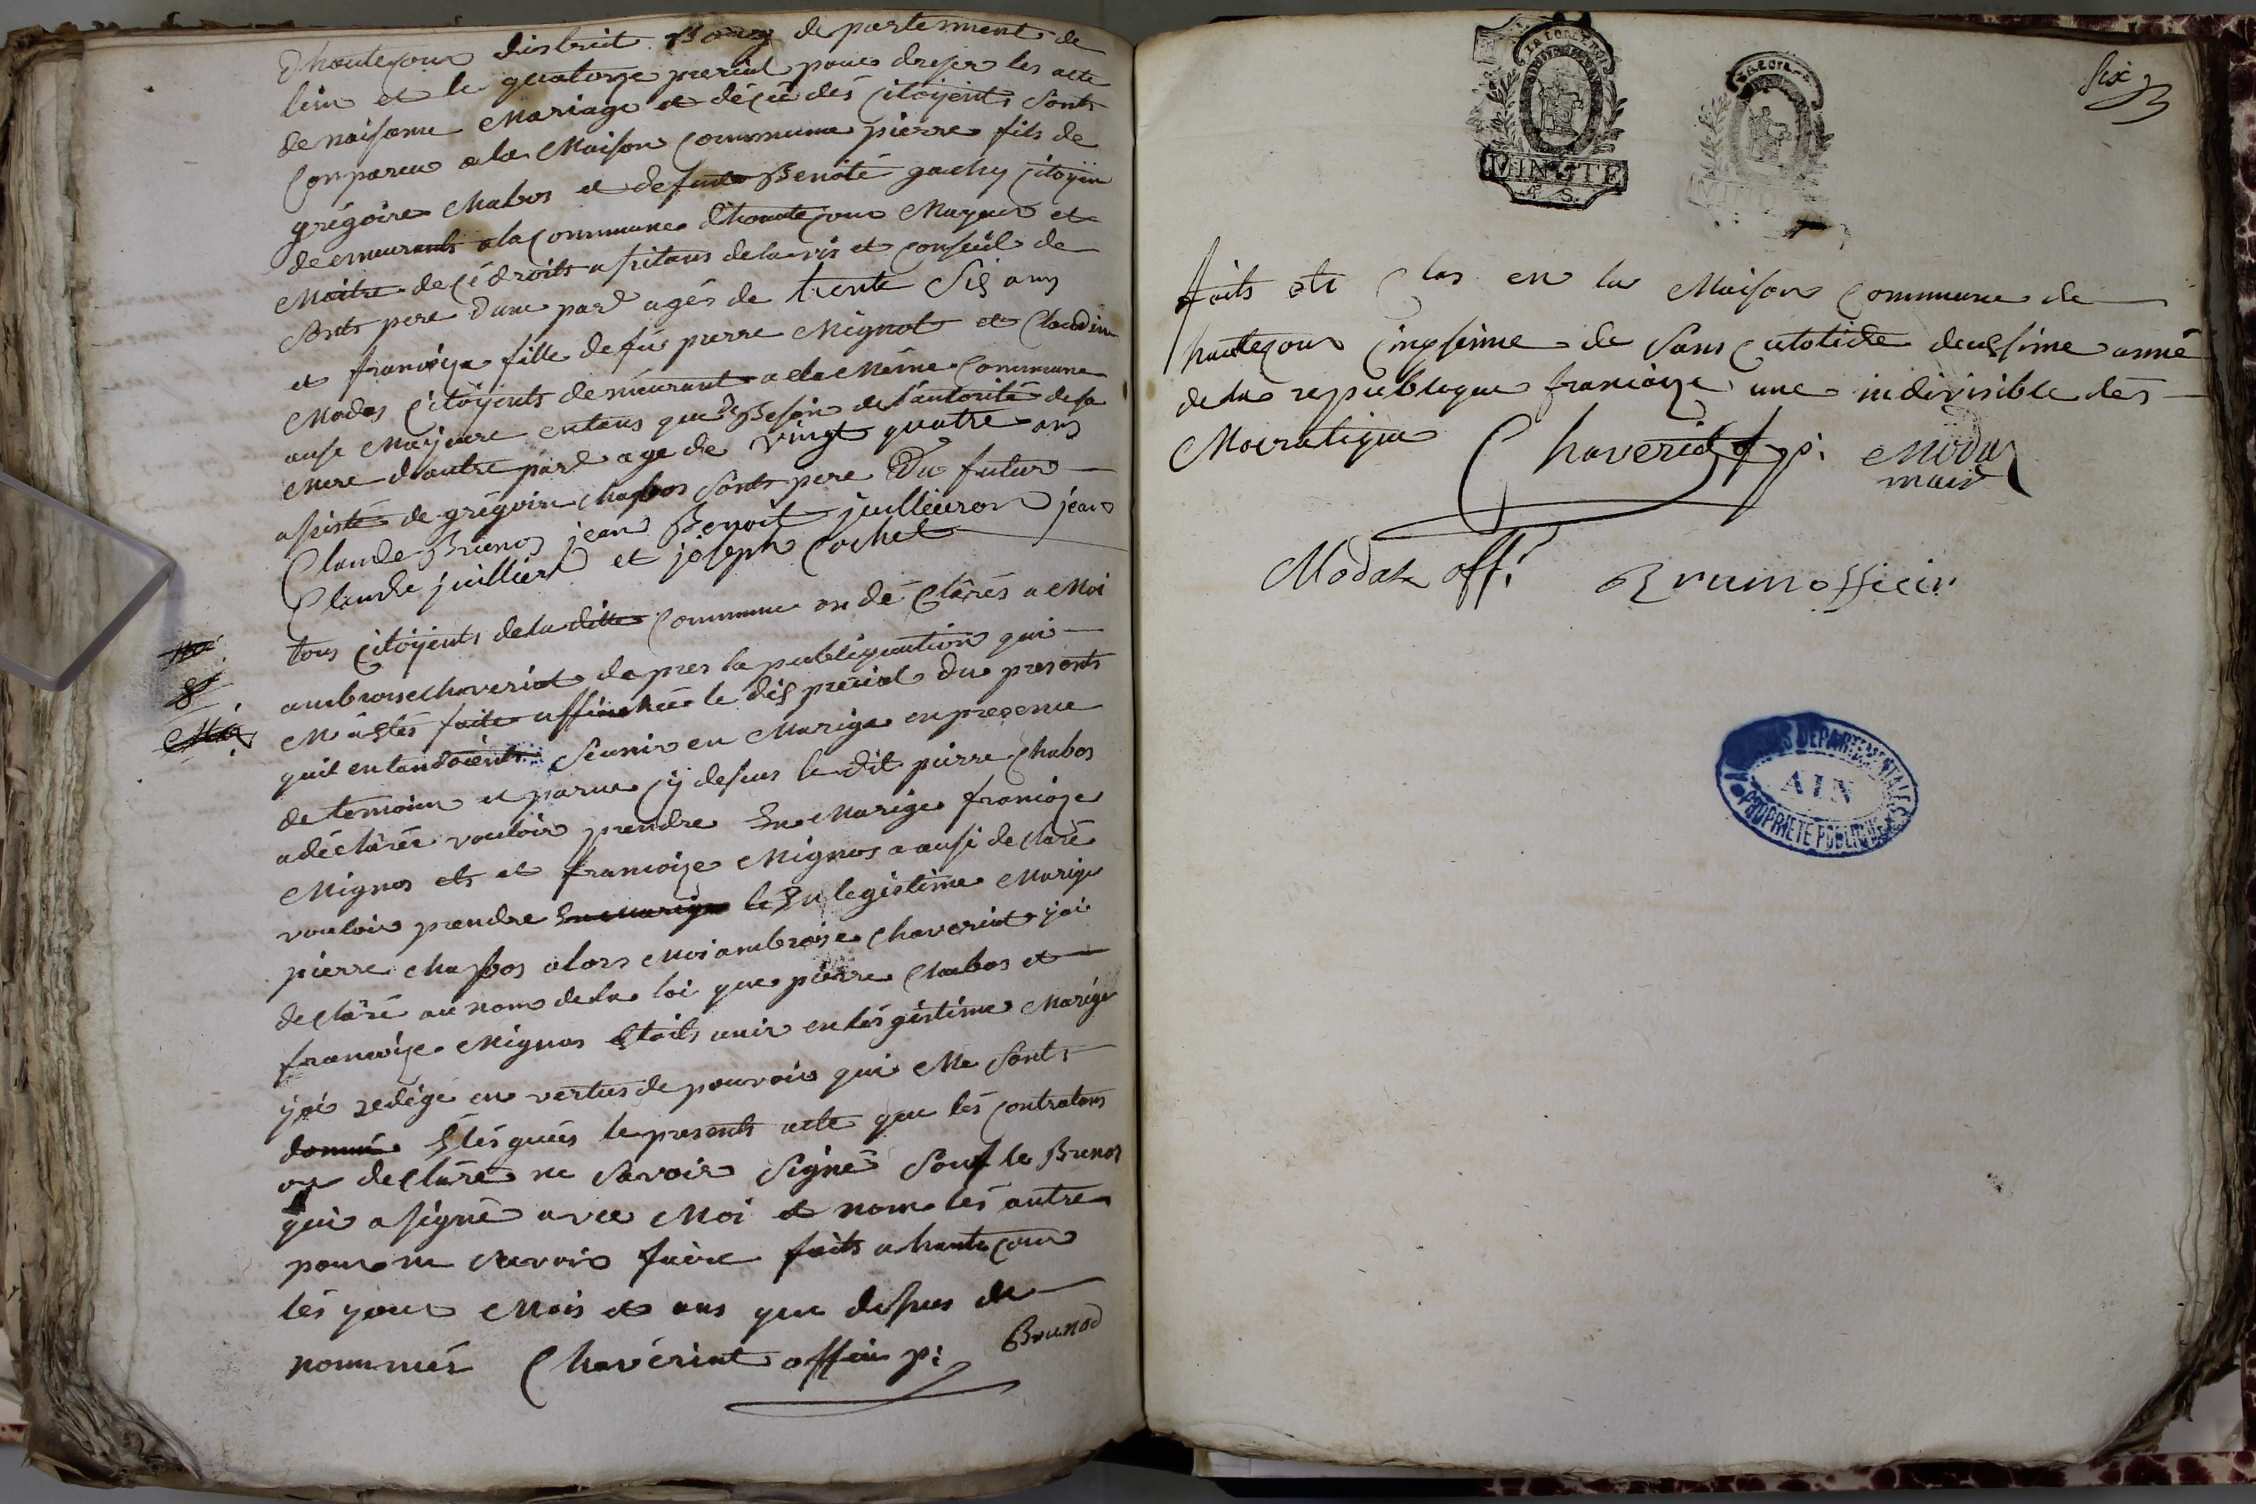 d'hautecour district Bourg departement de
lein et le quatorze prerial pour dreser les acte
de naisame Mariage et décè dés citoÿents sont
Conpareu a la Maison Commume pierre fils de
grégoire Chabos et defunte Benoite gachy citoÿin
demeurants a la Commune d'hautecour Mageur et
Maitre de cé droits asistans de la vis et conseil de
sonts pere dune part agés de trente Sis ans
et francoize fille de fu pierre Mignot et Claudine
Modas Citoÿents demeurant a la Méme Commune
ausi Majeure entans que de Besoin de l'autorité de sa
Mere d'autre part age de vingt quatre ans
asisté de grégoire Chabos sonts pere Du futur
Claude Brunos jean Benoit juilleron jean
Claude juilliers et joseph Cochet
tous Citoÿents de la ditte Commune on dé Clarés a Moi
ambroise chaveriat de pres la publiquation qui
M'a étés faite affichée le dis prerial du presents
quil entandoients seunir en Marige en presence
de temoins et parus cy desus le dit pierre Chabos
a déclarée vouloir prendre En Marige francoize
Mignos et et francoize Mignos a ausi declaré
vouloir prendre En marige le En legistime Marige
pierre Chabos alors Moi ambroise Chaveriat jai
de Claré au nom de la loi que pierre Chabos et
francoize Mignos Etoits unir en légistime Marige
jai redégé en vertus de pouvois qui Me sonts
donné Elégués le presents acte que lés contratans
on declaré ne savoir signé Souf le Brunos
qui a signé avec Moi et nom lés autre
pour ne savoir faire faits a hautecour
lés jour Mois et ans que desus de
nommés Chavériat officie p:
Brunod
six
LA LOI
MINUTE
4 S.
faits ete Clos en la Maison Commune de
hautecour Cinqsime de Sans Culotide deusime anné
de la republique francoize une indivisible dés
Mocratique Chaveriat of p: Modas
maire
Modas offi Brun officier
ARCHIVES DEPARTEMENTALES
AIN
PROPRIETE PUBLIQUE